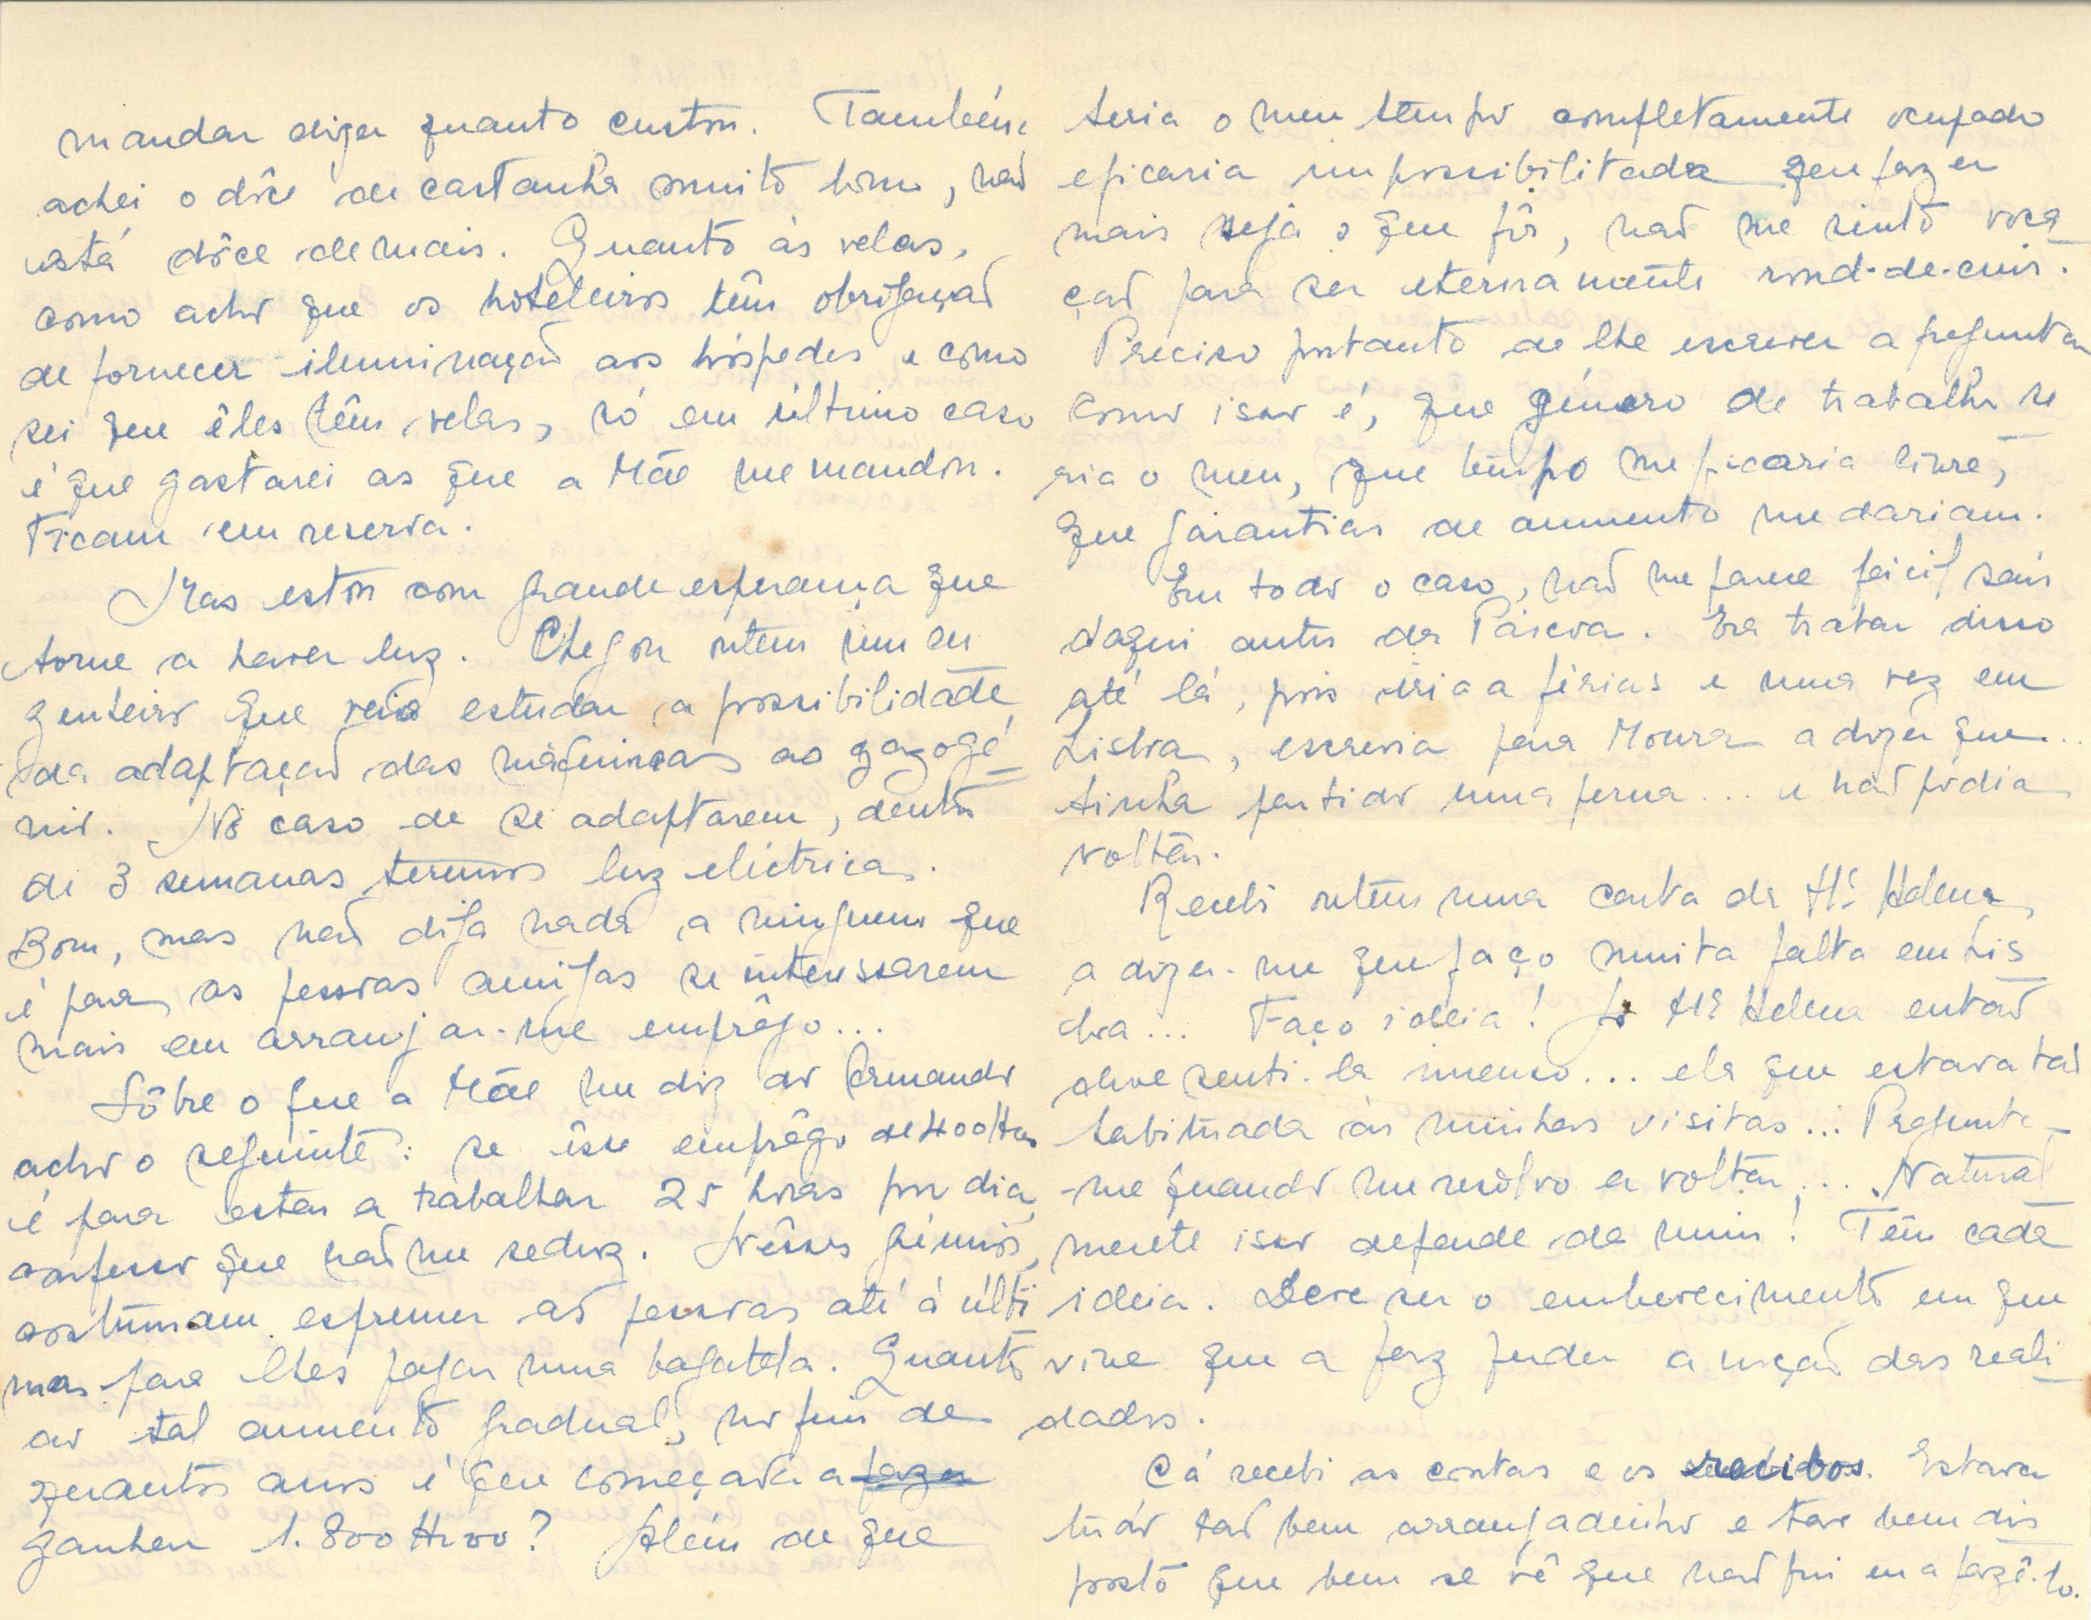 mandar dizer quanto custou. Também
achei o dôce de castanha muito bom, não
está dôce demais. Quanto às velas,
como acho que os hoteleiros têm obrigação
de fornecer iluminação aos hóspedes e como
sei que êles têm velas, só em último caso
é que gastarei as que a Mãe me mandou.
Ficam em reserva.
Mas estou com grande esperança que
torne a haver luz. Chegou ontem um en
genheiro que veio estudar a possibilidade
da adaptação das máquinas ao gazogé
nio. No caso de se adaptarem, dentro
de 3 semanas teremos luz eléctrica.
Bom, mas não diga nada a ninguem que
é para as pessoas amigas se interessarem
mais em arranjar-me emprêgo...
Sôbre o que a Mãe me diz do Armando
acho o seguinte: se êsse emprêgo de 400
é para estar a trabalhar 25 horas por dia,
confesso que não me seduz. Nêsses grémios,
costumam espremer as pessoas até á últi
mas para lhes pagar uma bagatela. Quanto
ao tal aumento gradual, no fim de
quantos anos é que começava a fazer
ganhar 1.800$00? Além de que
teria o meu tempo completamente ocupado
e ficaria impossibilitada de fazer
mais seja o que fôr, não me sinto voca
ção para ser eternamente rond-de-cuir.
Preciso portanto de lhe escrever a preguntar
como isso é, que género de trabalho se
ria o meu, que tempo me ficaria livre,
que garantias de aumento me dariam.
Em todo o caso, não me parece fácil sair
daqui antes da Páscoa. Era tratar disso
até lá, pois iria a férias e uma vez em
Lisboa, escrevia para Moura a dizer que...
tinha partido uma perna... e não podia
voltar.
Recebi ontem uma carta da Mª Helena
a dizer-me que faço muita falta em Lis
boa... Faço ideia! Mª Helena então
deve senti-la imenso... ela que estava tão
habituada às minhas visitas... Pregunta-
-me quando me resolvo a voltar... Natural
mente isso depende de mim! Tem cada
ideia. Deve ser o embevecimento em que
vive que a faz perder a noção das reali
dades.
Cá recebi as contas e os recibos. Estava
tudo tão bem arranjadinho e tão bem dis
posto que bem se vê que não fui eu a fazê-lo.